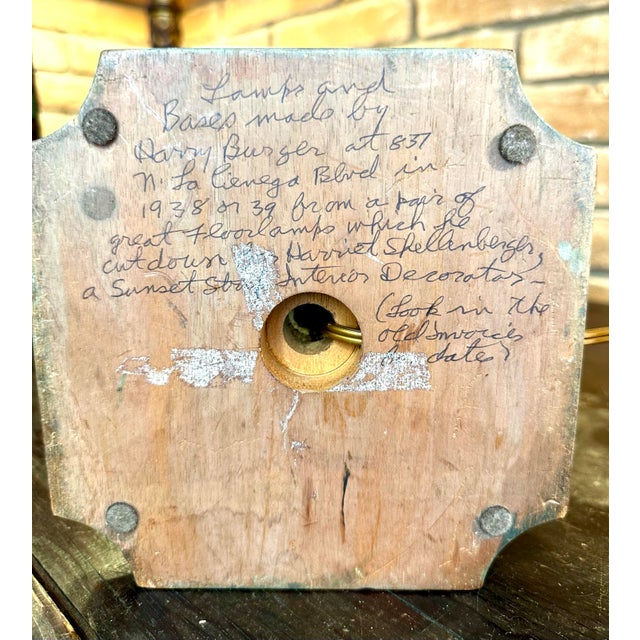 Lamps and
Bases made by
Harry Burger at 837
N. La Cienega Blvd in
1938 or 39 from a pair of
great Floorlamps which he
cut down Harriet Shellenberger,
a Sunset Interior Decorator -
(Look in the
old invoices
dates)